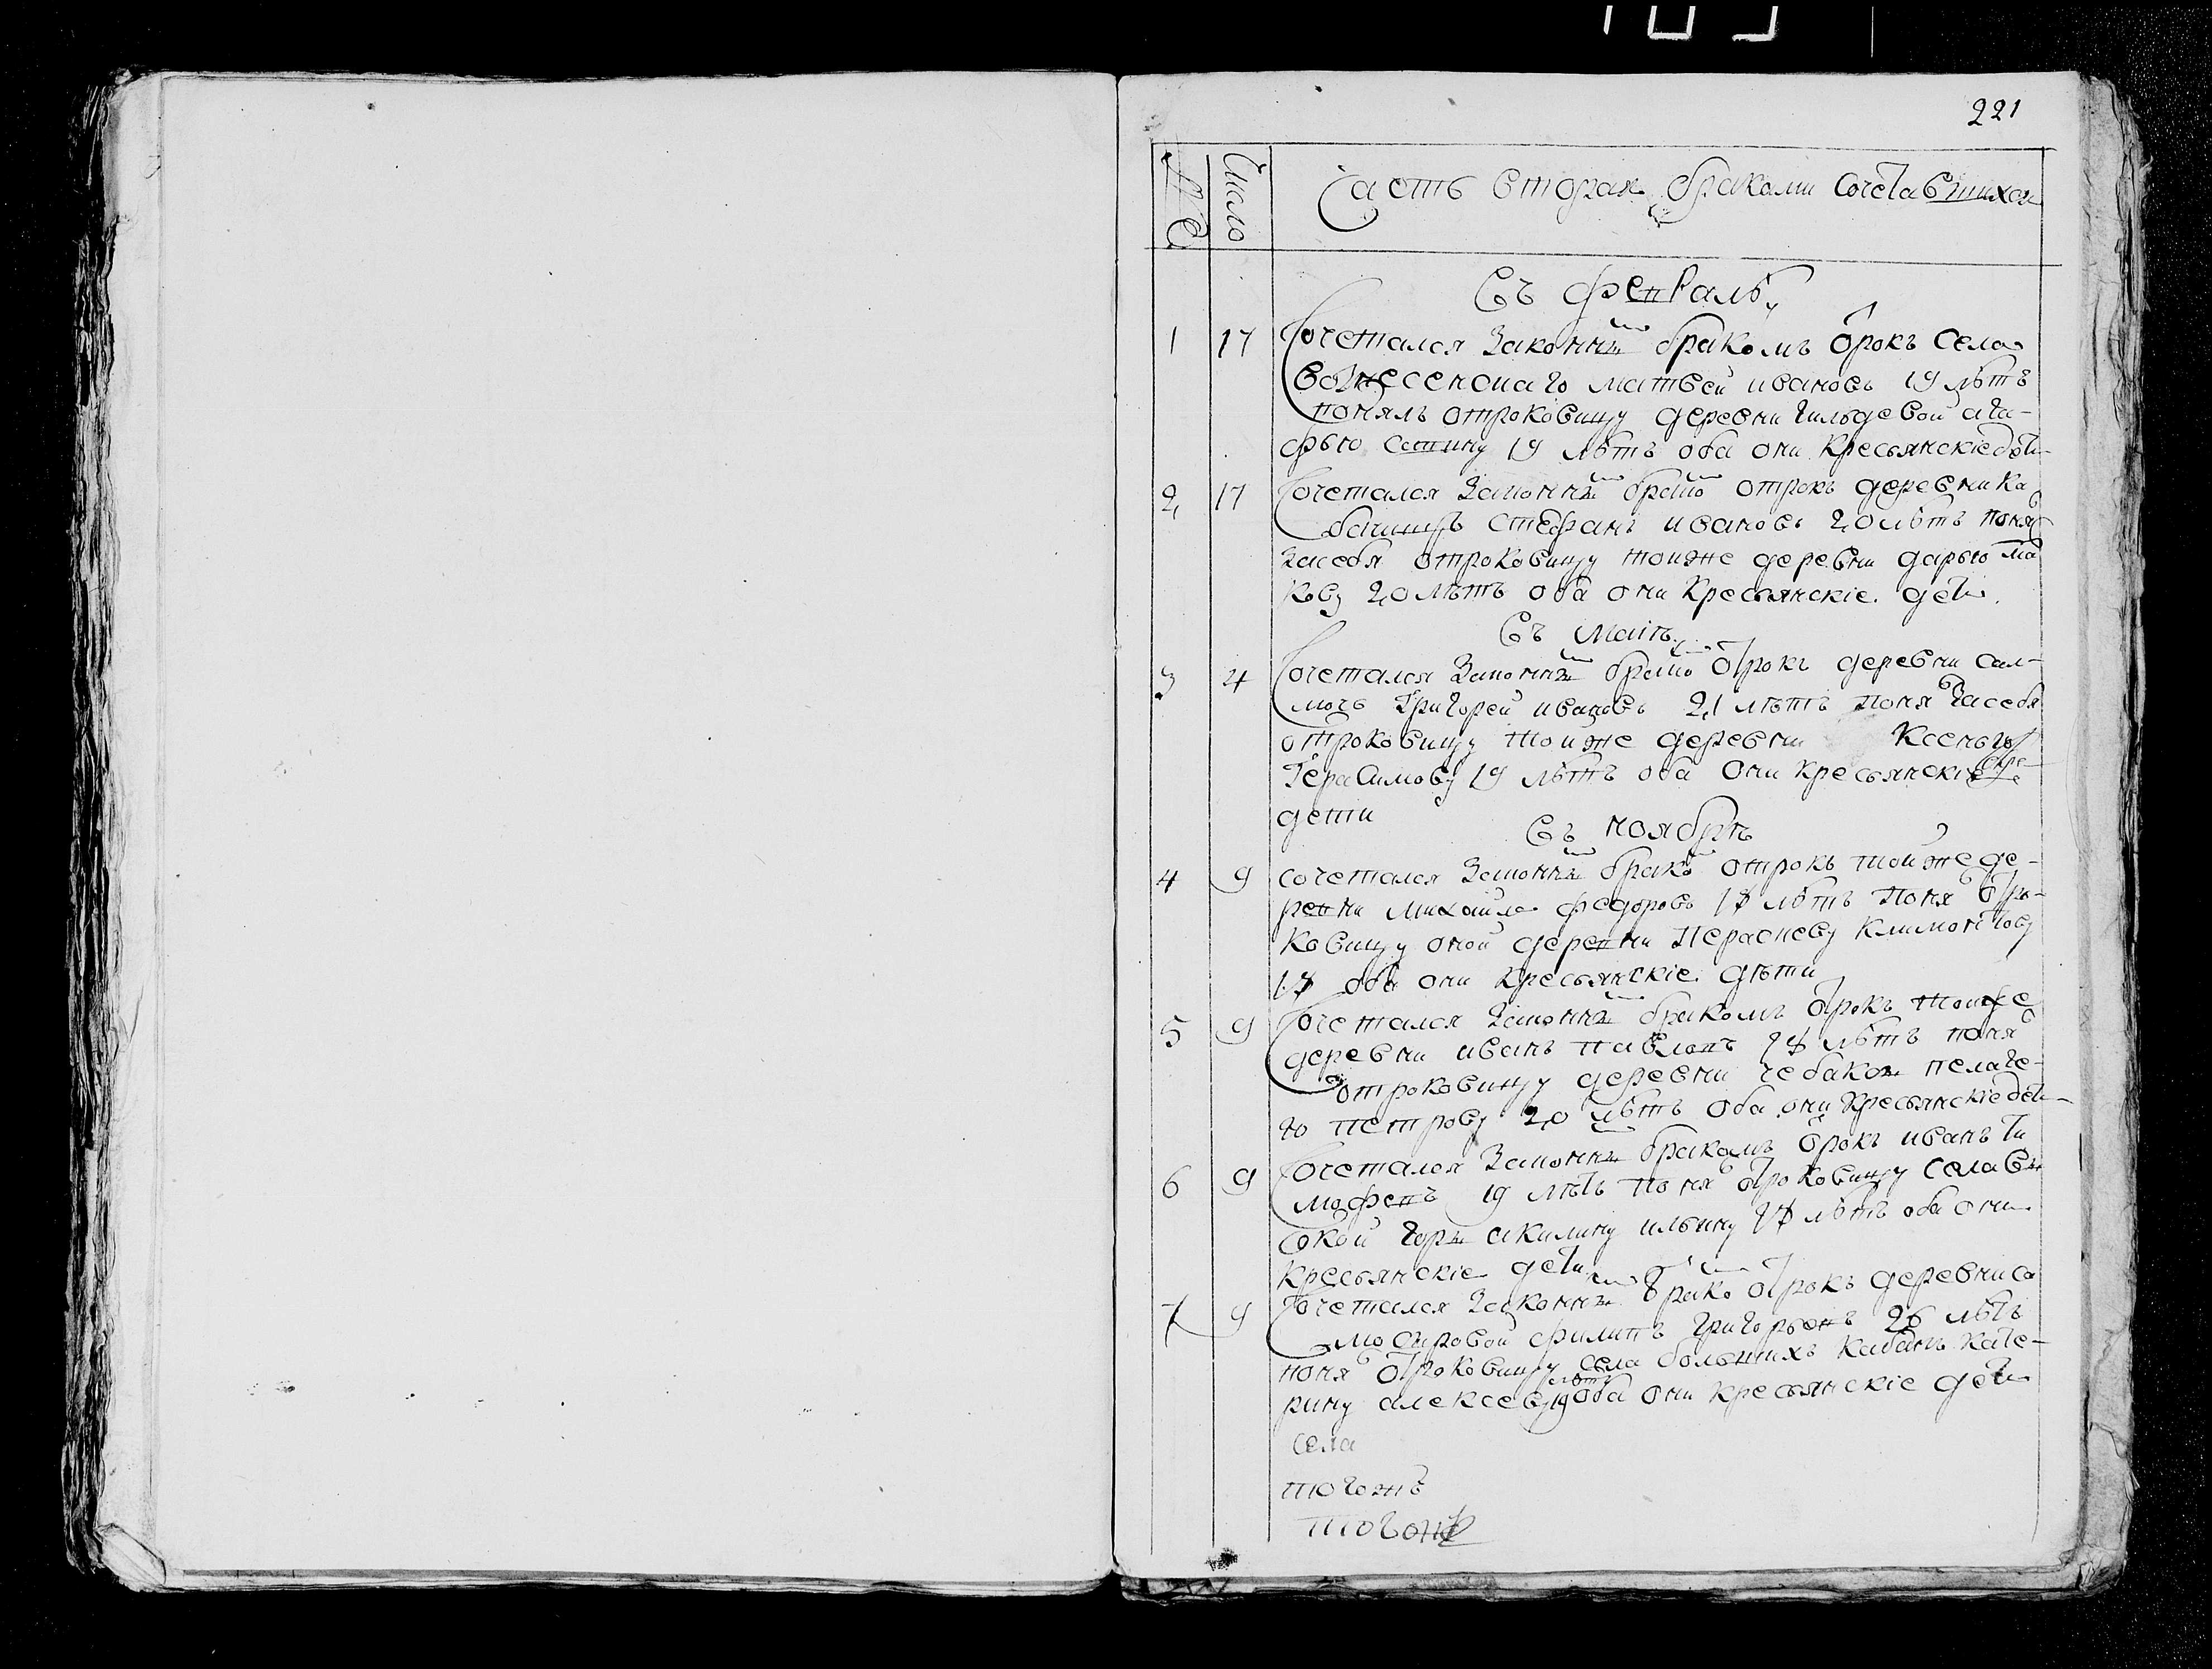 221
№ Число Часть вторая браками сочетавшихся
Въ февралѣ
1 17 Сочетался законны браком отрокъ села
Вознесенскаго матвей ивановъ 19 лѣтъ
понялъ отроковицу деревни ага-
фью 19 лѣтъ оба они кресьянские дети
2 17 Сочетался законны брако отрокъ деревни Ка
стефанъ ивановъ 20 лѣтъ поня
засебя отроковицу тоиже деревни дарью
20 лѣтъ оба они кресьянские дети
Въ маiѣ
3 4 Сочетался законны брако отрокъ деревни сал-
мачь Григорей ивановъ 21 лѣтъ поня засебя
отроковицу тоиже деревни Ксенью
Герасимову 19 лѣтъ оба они кресьянские
дети
Въ ноябрѣ
4 9 сочетался законны брако отрокъ той же де-
ревни михаила федоровъ 18 лѣтъ поня отро-
ковицу оной деревни Парасковеву климонтову
18 оба они кресьянские дѣти
5 9 Сочетался законны бракомъ отрокъ тоиже
деревни иванъ павловъ 18 лѣтъ поня
отроковицу деревни чебаксы пелаге-
ю петрову 20 лѣтъ оба они кресьянские дети
6 9 Сочетался законны бракомъ отрокъ иванъ ти
мофеевъ 19 лѣтъ поня отроковицу села вы
сокой горы акилину ильину 18 лѣтъ оба они
кресьянские дети
7 9 Сочетался законны брако отрокъ деревни са
мосыровой филипъ григорьевъ 26 лѣтъ
поня отроковицу села большихъ кабанъ кате-
рину алексеву 19 лѣтъ оба они кресьянские дети
села
тогожъ
тогож